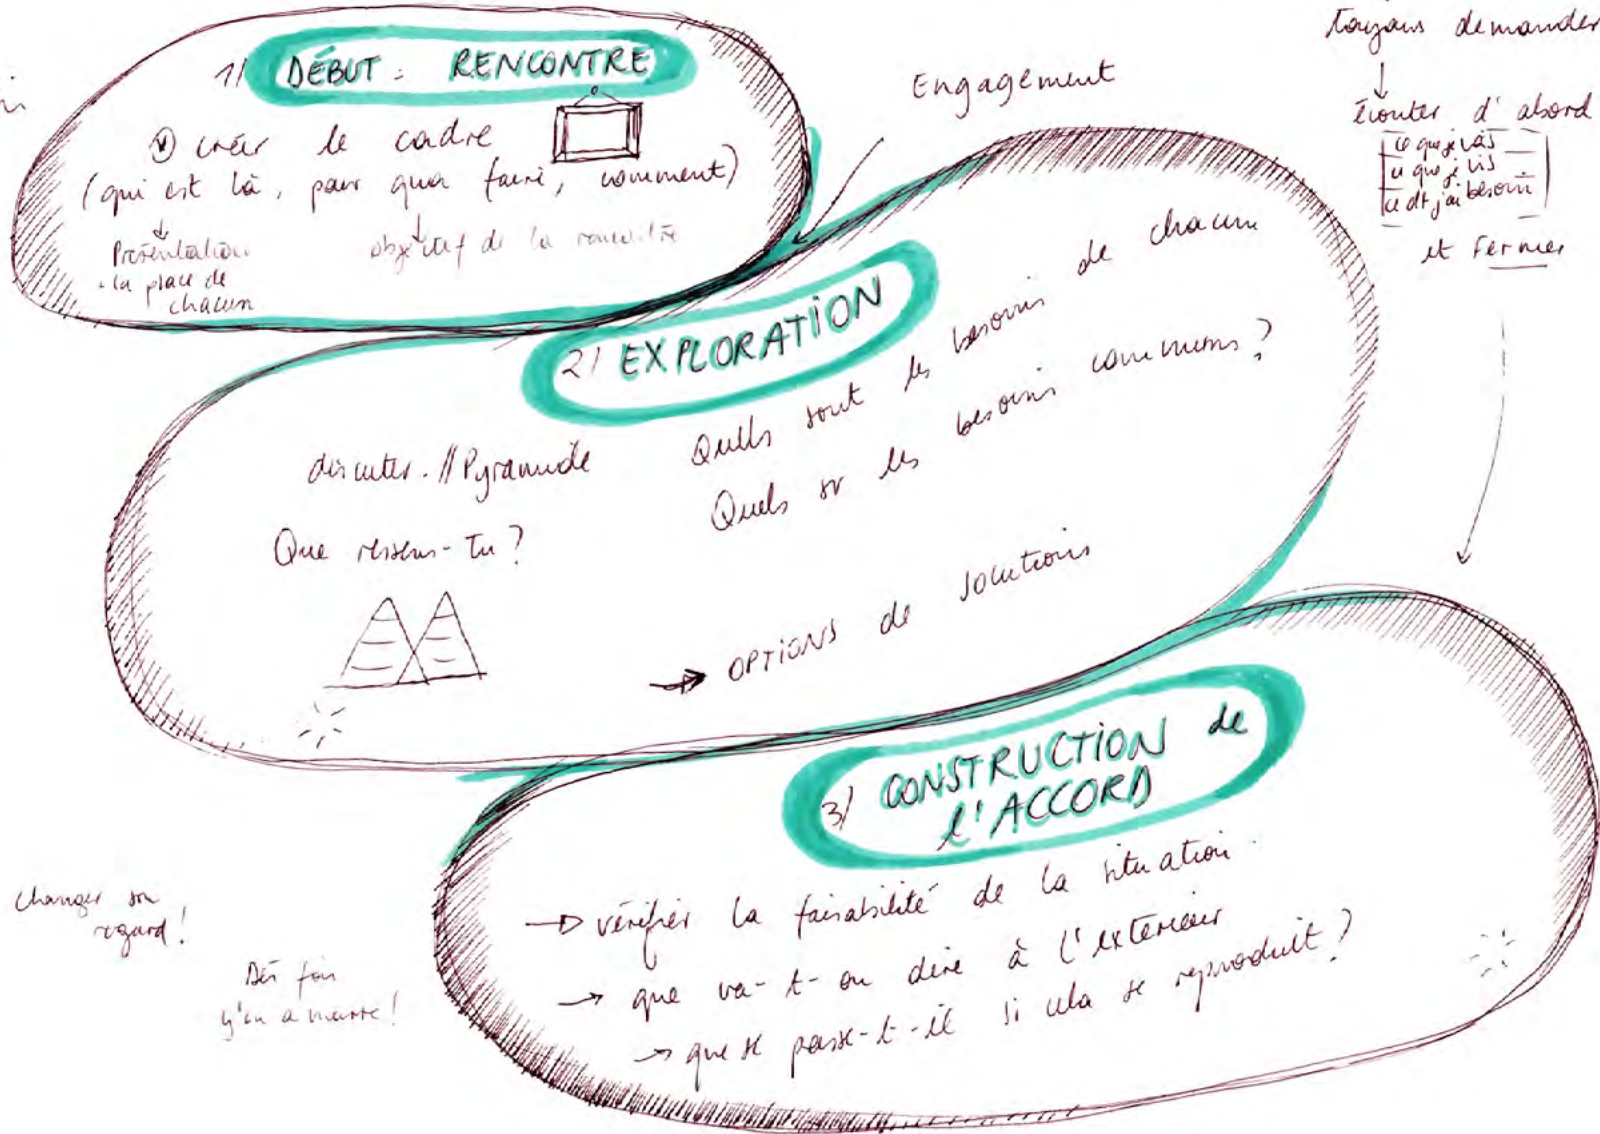 1/ DÉBUT : RENCONTRE
créer le cadre
(qui est là, pour quoi faire, comment)
Présentation
- la place de
chacun
objectif de la rencontre
Engagement
toujours demander
écouter d'abord
ce que je vis
ce dt j'ai besoin
et fermer
2/ EXPLORATION
discuter. // Pyramide
Que ressens-tu ?
Quels sont les besoins de chacun
Quels st les besoins communs ?
OPTIONS de solutions
3/ CONSTRUCTION de
l'ACCORD
→ vérifier la faisabilité de la situation
→ que va-t-on dire à l'extérieur
→ que se passe-t-il si cela se reproduit ?
Changer son
regard !
Des fois
y'en a marre !